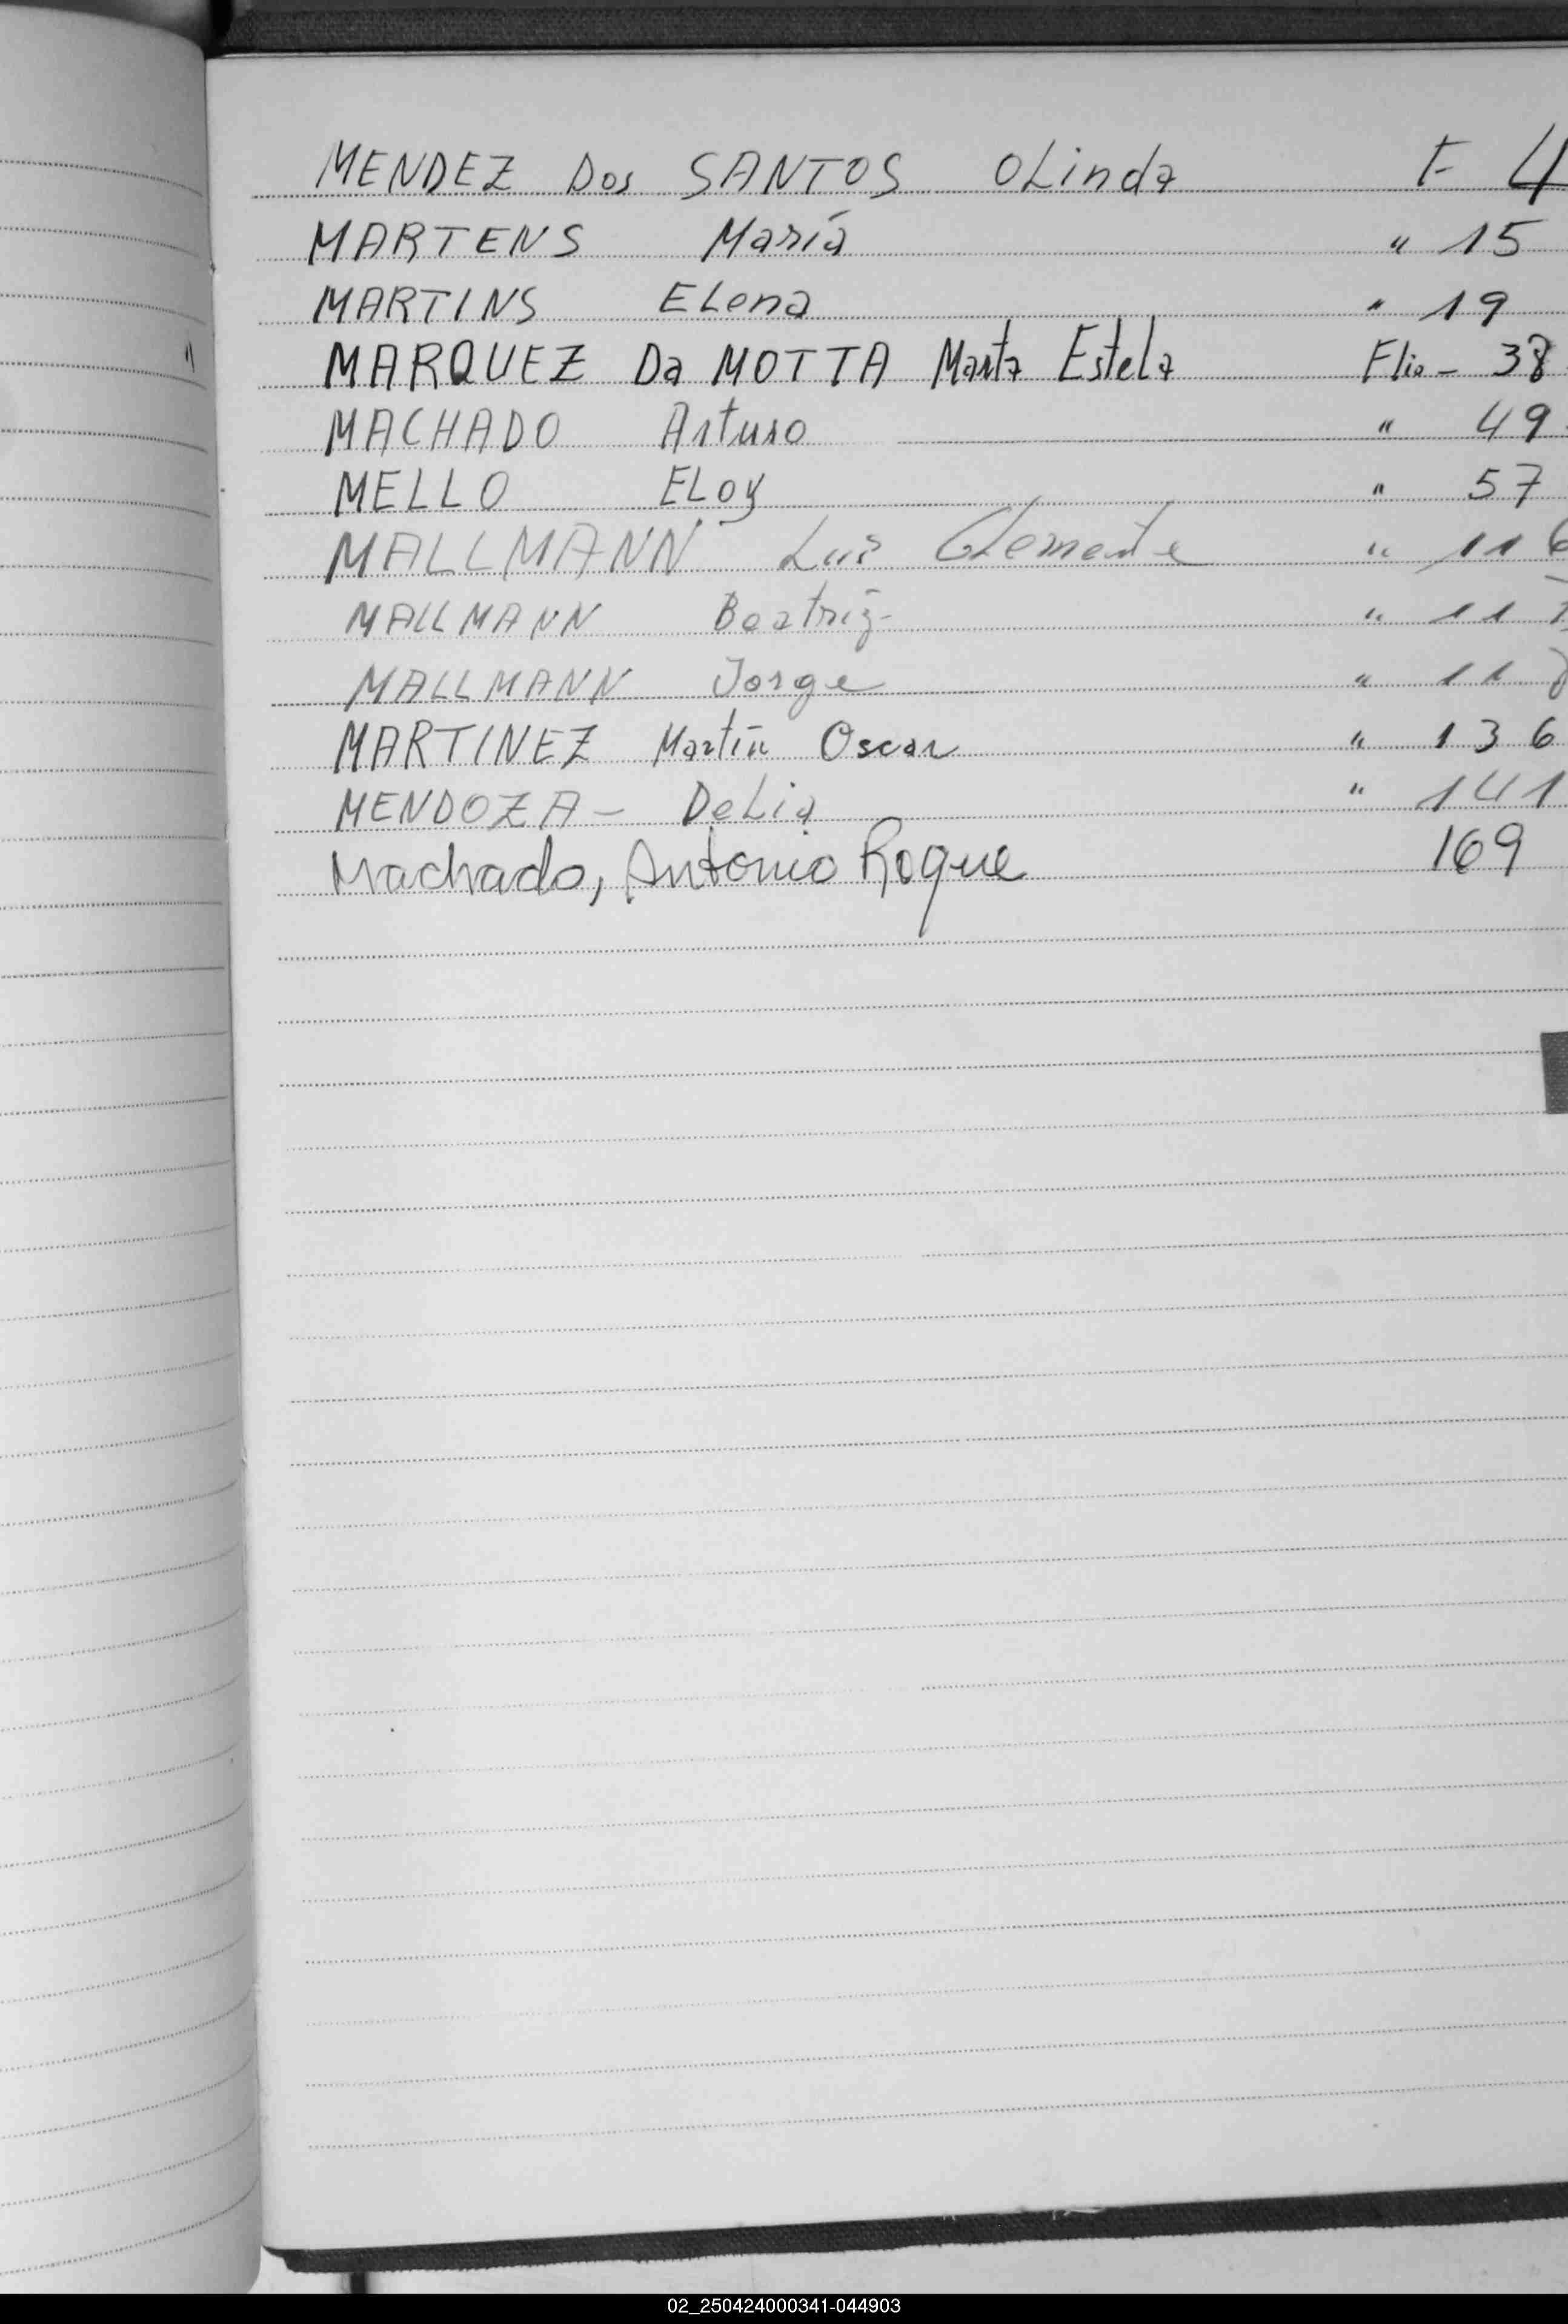 MENDEZ Dos SANTOS OLinda F 4
MARTENS María " 15
MARTINS ELena " 19
" MARQUEZ Da MOTTA Marta Estela Flio - 38
MACHADO Arturo " 49
MELLO ELoy " 57
MALLMANN Luis Clemente " 116
MALLMANN Beatriz - " 117
MALLMANN Jorge " 118
MARTINEZ Martín Oscar " 136
MENDOZA - DeLia " 141
Machado, Antonio Roque 169
02_250424000341-044903